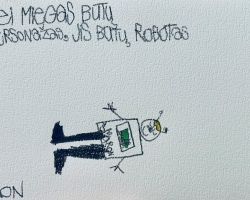 EI MIEGAS BŪTŲ
ERSONAŽAS, JIS BŪTŲ, ROBOTAS
ON